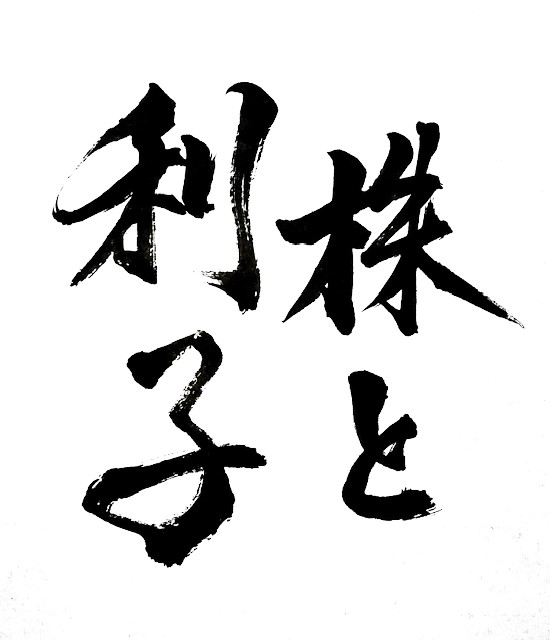 株と
利子